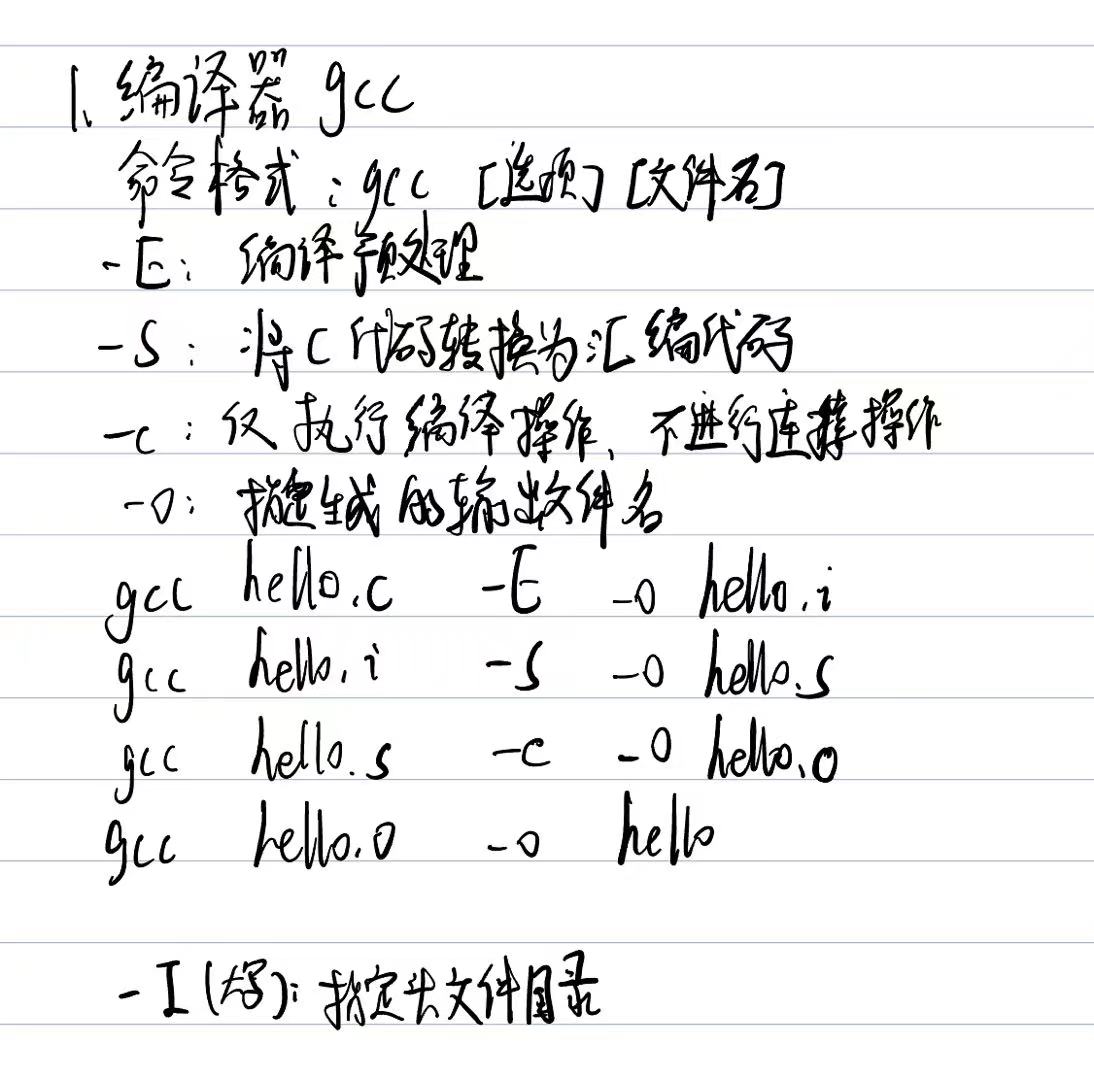 1. 编译器 gcc
命令格式：gcc [选项] [文件名]
-E： 编译预处理
-S： 将C代码转换为汇编代码
-c： 仅执行编译操作、不进行连接操作
-o： 指定生成的输出文件名
gcc hello.c -E -o hello.i
gcc hello.i -S -o hello.s
gcc hello.s -c -o hello.o
gcc hello.o -o hello
-I(大写)：指定头文件目录